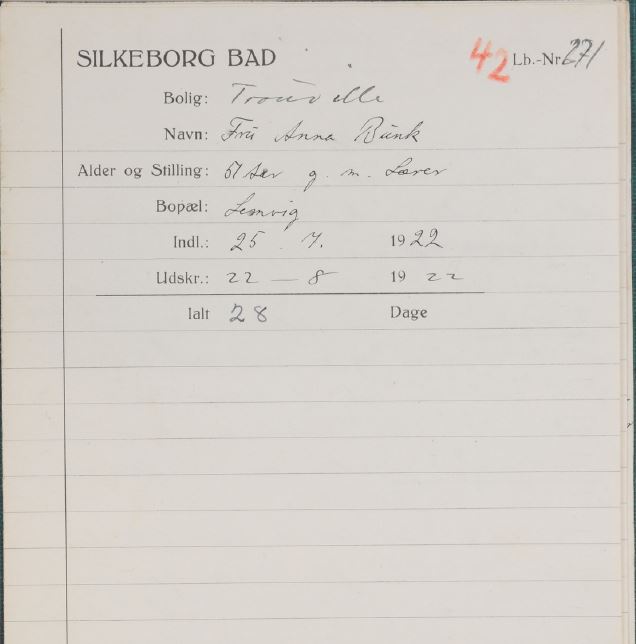 SILKEBORG BAD 42 Lb.-Nr. 271
Bolig: Trouville
Navn: Fru Anna Bunk
Alder og Stilling: 51 Aar g. m. Lærer
Bopæl: Lemvig
Indl.: 25. 7. 1922
Udskr.: 22 — 8 1922
Ialt 28 Dage